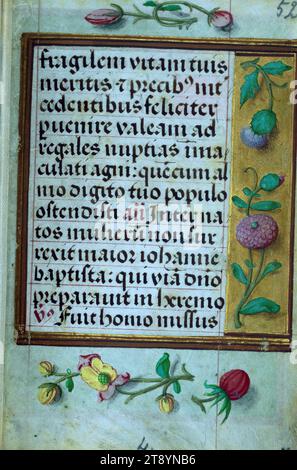 52
fragilem vitam tuis
meritis ⁊ precibꝰ int
cedentibus feliciter
puenire valeam ad
regales nuptias ima
culati agni: quecum al
mo digito tuo populo
ostendisti añ Inter na
tos mulierū non sur
rexit maior iohanne
baptista: qui viā dño
preparauit in heremo
Fuit homo missus
alamy
Image ID: 2T8YNB6
www.alamy.com